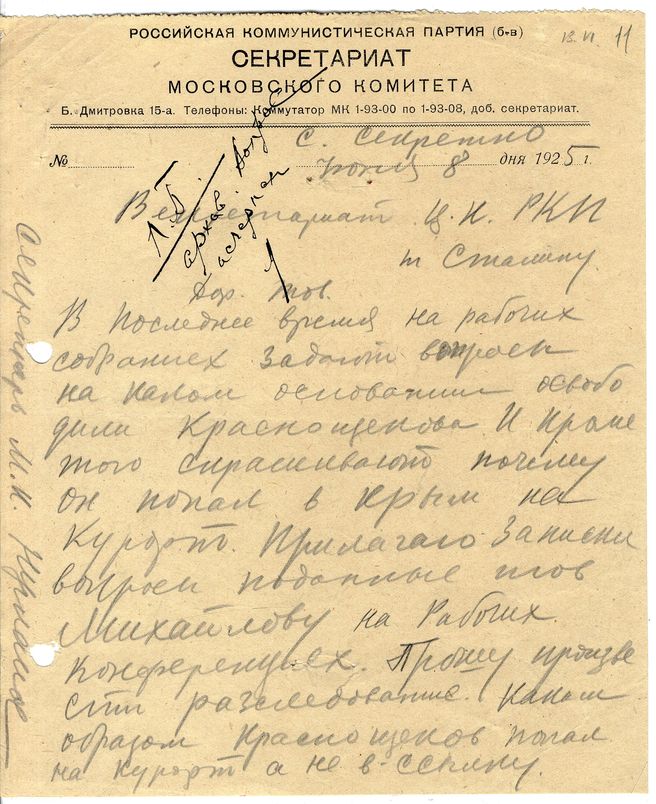 РОССИЙСКАЯ КОММУНИСТИЧЕСКАЯ ПАРТИЯ (б-в)
СЕКРЕТАРИАТ
МОСКОВСКОГО КОМИТЕТА
Б. Дмитровка 15-а. Телефоны: Коммутатор МК 1-93-00 по 1-93-08, доб. секретариат.
13.VI. 11
С. Секретно
№ Июня 8 дня 1925 г.
архив
исчерпан
В секретариат Ц.К. РКП
т Сталину
Дор. тов.
В последнее время на рабочих
собраниех задают вопросы
на каком основании освобо
дили Краснощекова И кроме
того спрашивают почему
он попал в Крым на
Курорт. Прилагаю Записки
вопросы поданные тов
Михайлову на Рабочих
Конференциех. Прошу произве
сти разследование. каким
образом Краснощеков попал
на Курорт а не в ссылку.
Секретарь М.К.